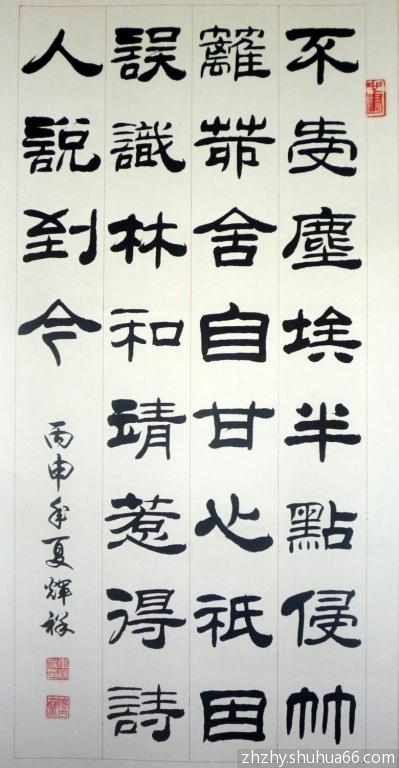 不受塵埃半點侵竹
籬茆舍自甘心祇因
誤識林和靖惹得詩
人說到今
丙申年夏輝祥
zhzhy.shuhua66.com